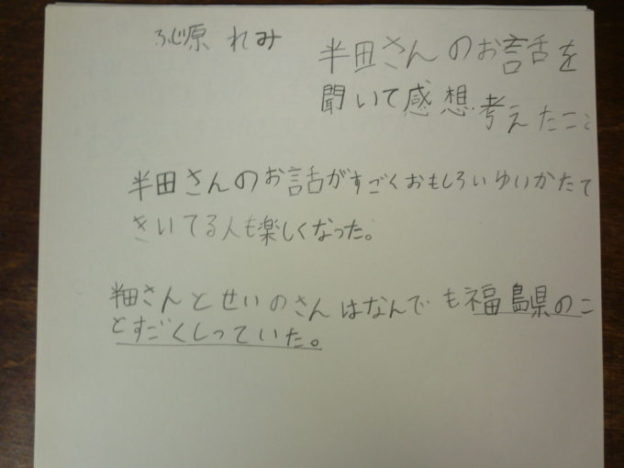 ふじ原 れみ
半田さんのお話を
聞いて感想考えたこと
半田さんのお話がすごくおもしろいゆいかたで
きいてる人も楽しくなった。
半田さんとせいのさんはなんでも福島県のこ
とすごくしっていた。